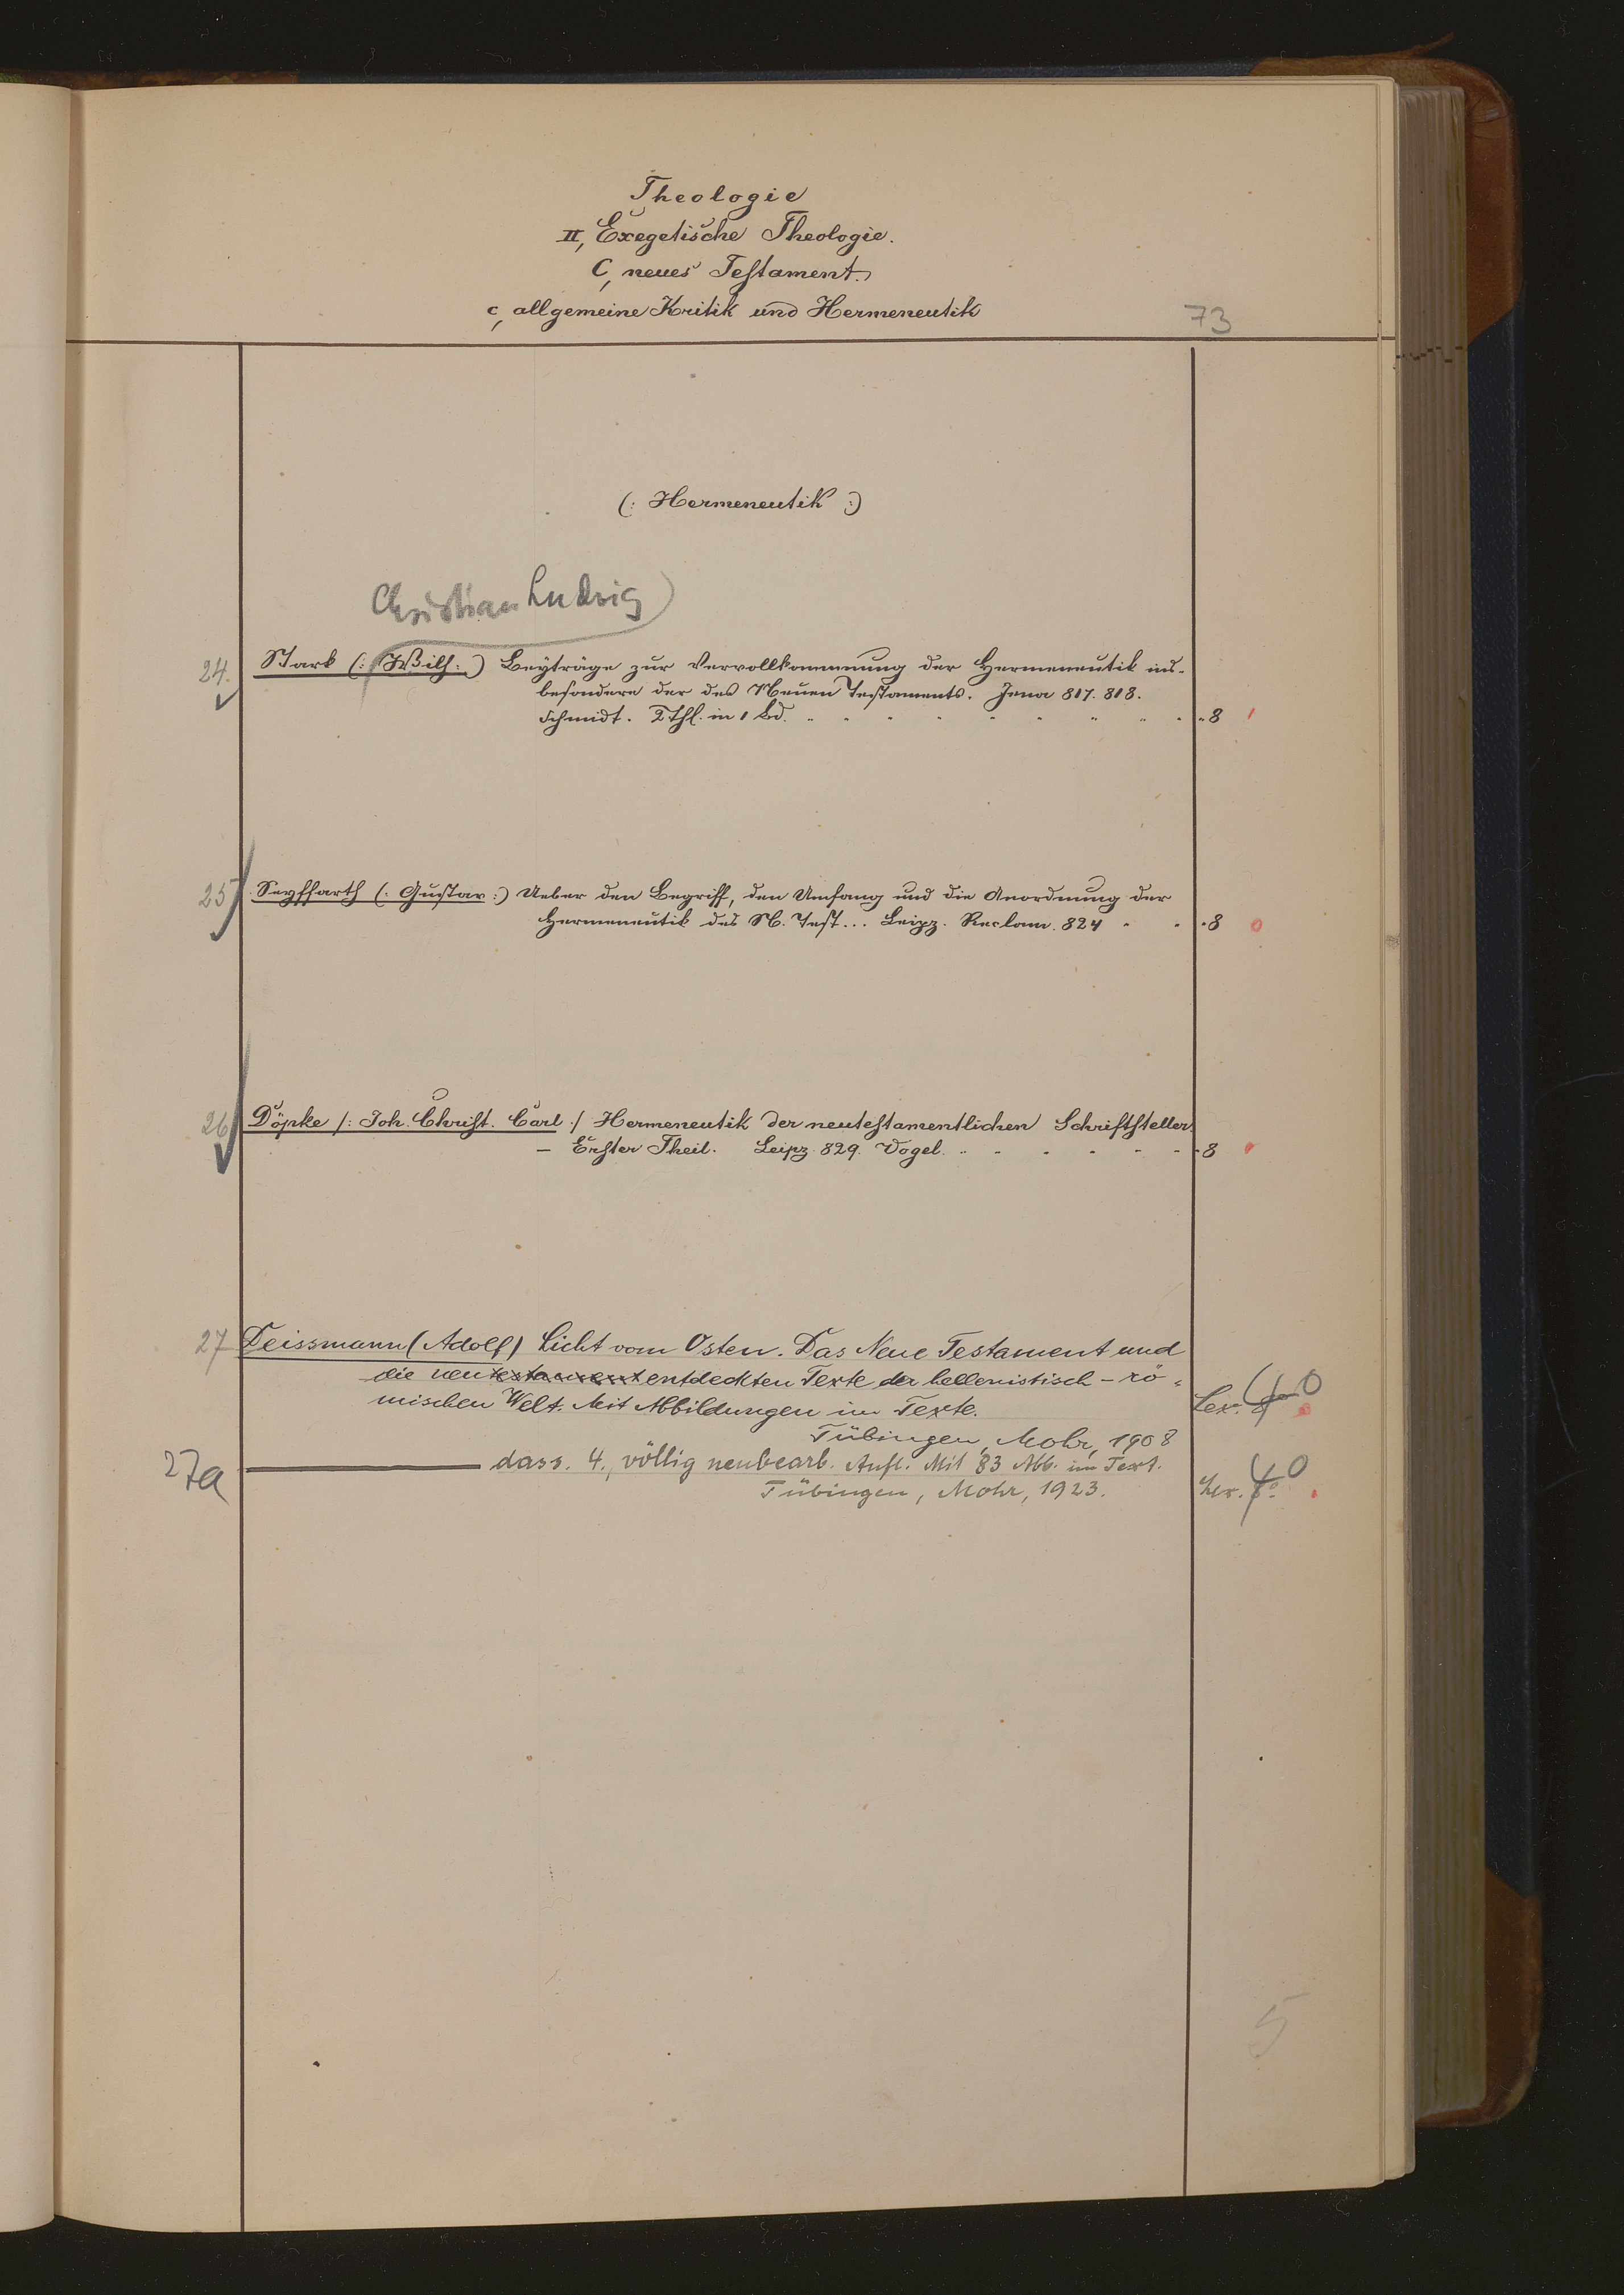 Theologie
II, Exegetische Theologie.
C, neues Testament.
c, allgemeine Kritik und Hermeneutik
73
(: Hermeneutik :)
Christian Ludwig
24. Stark (: Wilh: ) Beyträge zur Vervollkommnung der Hermeneutik ins-
besondere der des Neuen Testaments. Jena 817. 818.
Schmidt. 2 Thl. in 1 Bd. 8
25 Seyffarth (: Gustav :) Ueber den Begriff, den Umfang und die Anordnung der
Hermeneutik des N. Test... Leipz. Reclam. 824 8
26 Döpke /: Joh. Christ. Carl :/ Hermeneutik der neutestamentlichen Schriftsteller.
– Erster Theil. Leipz. 829. Vogel. 8
27 Deissmann (Adolf) Licht vom Osten. Das Neue Testament und
die neutestament entdeckten Texte der hellenistisch-rö-
mischen Welt. Mit Abbildungen im Texte. Lex. 8 40
Tübingen, Mohr, 1908
27a dass. 4., völlig neubearb. Aufl. Mit 83 Abb. im Text.
Tübingen, Mohr, 1923. Lex. 8° 40
5